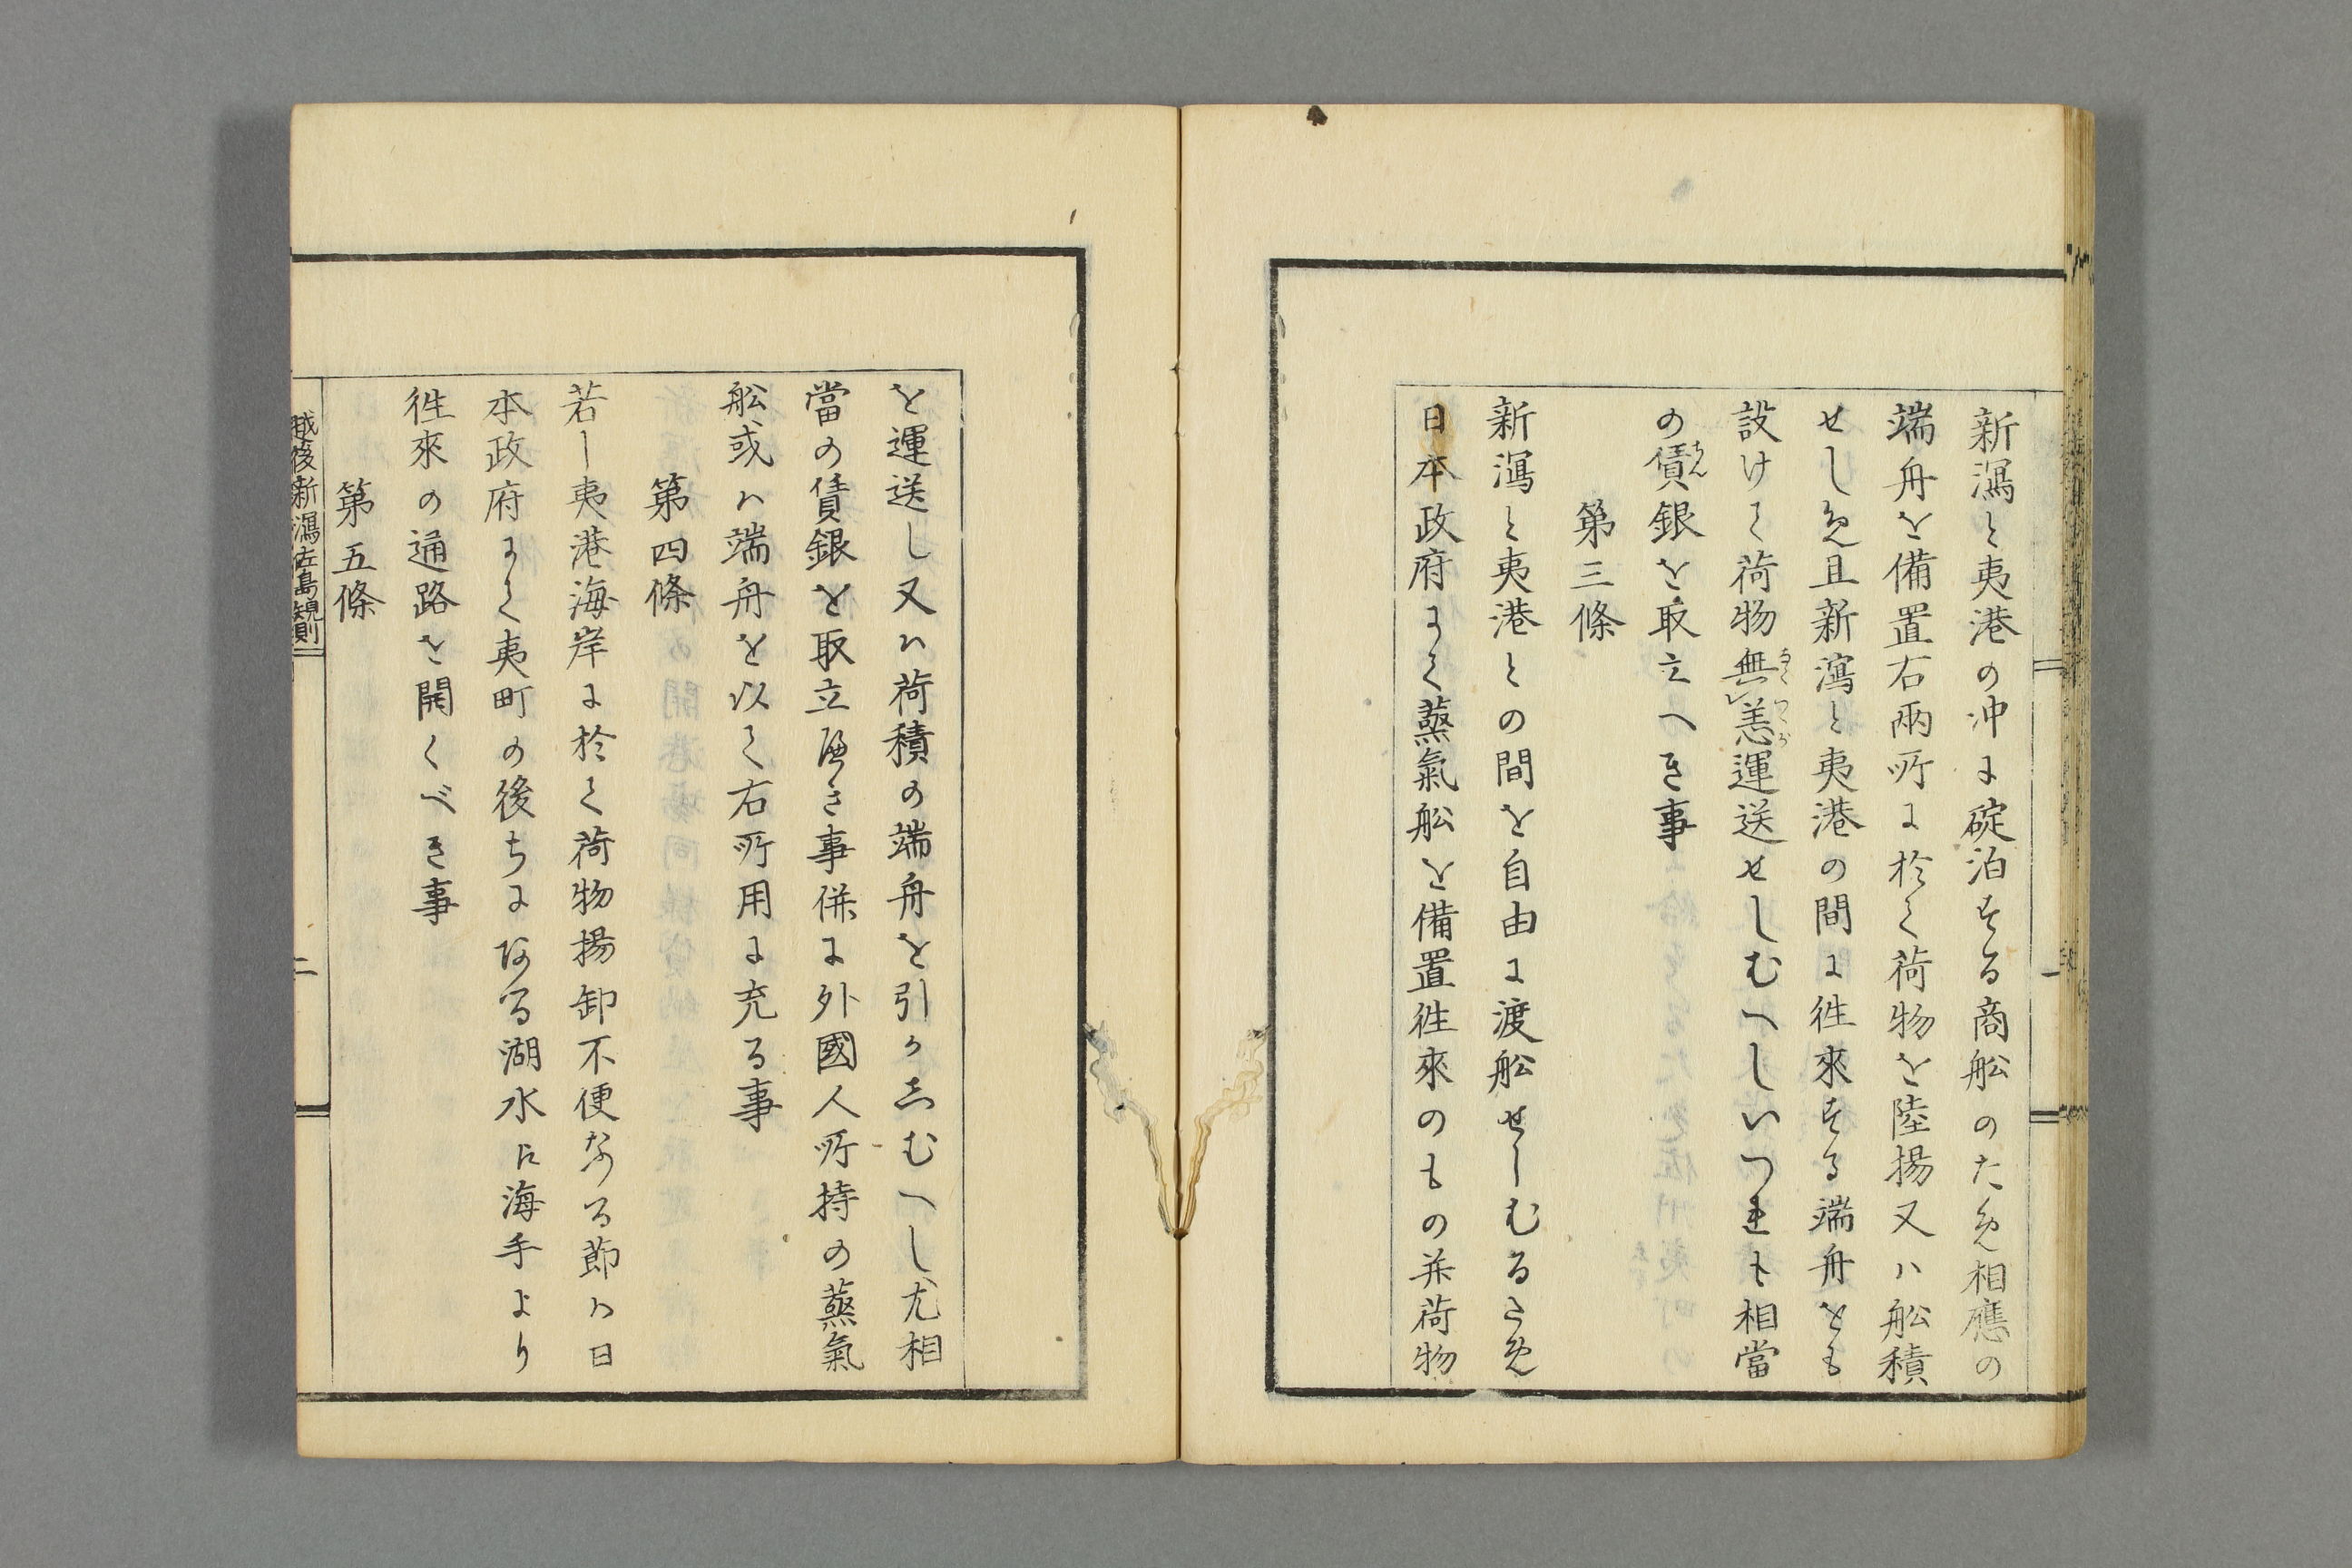 新潟と夷港の沖に碇泊する商舩のため相應の
端舟を備置右兩所に於て荷物を陸揚又ハ舩積
せしめ且新潟と夷港の間に徃來する端舟をも
設けて荷物無恙運送せしむへしいつれも相當
の賃銀を取立へき事
第三條
新潟と夷港との間を自由に渡舩せしむるため
日本政府にて蒸氣舩を備置徃來のもの并荷物
を運送し又ハ荷積の端舟を引かしむへし尤相
當の賃銀を取立べき事併に外國人所持の蒸氣
舩或ハ端舟を以て右所用に充る事
第四條
若し夷港海岸に於て荷物揚卸不便なる節ハ日
本政府にて夷町の後ちにある湖水に海手より
徃來の通路を開くべき事
第五條
越後新潟佐島規則
二